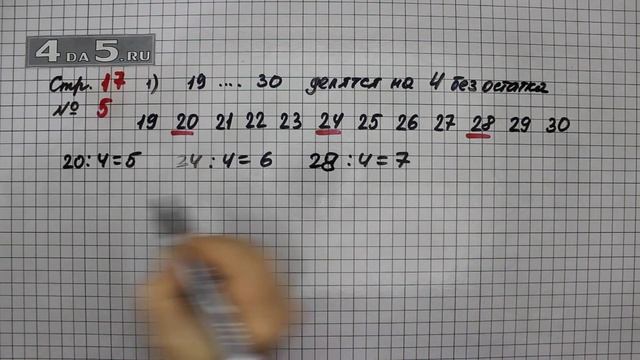 4 DA 5.RU
Стр. 17 1) 19 .... 30 делятся на 4 без остатка
№ 5
19 20 21 22 23 24 25 26 27 28 29 30
20:4=5 24:4=6 28:4=7